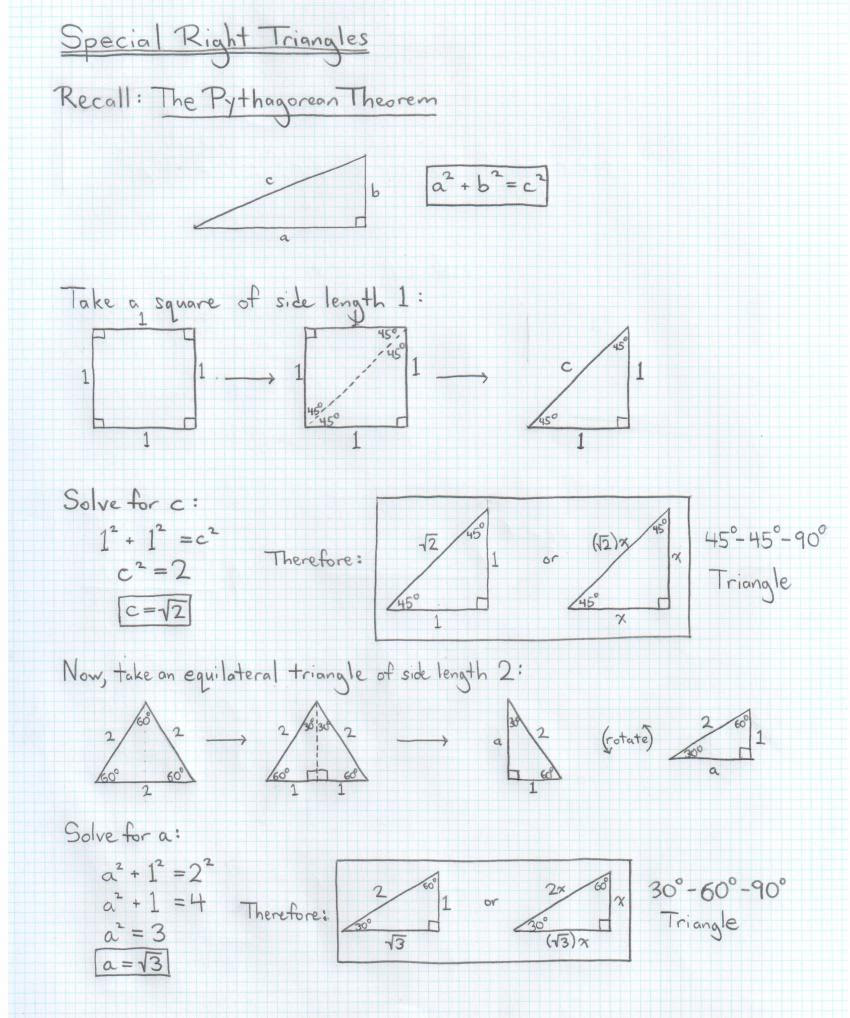 Special Right Triangles
Recall: The Pythagorean Theorem
c
b
a
a² + b² = c²
Take a square of side length 1:
1
1
1
1
1
1
1
1
45°
45°
45°
45°
c
1
1
45°
45°
Solve for c:
1² + 1² = c²
c² = 2
c = √2
Therefore:
√2
45°
1
45°
1
or
(√2)x
45°
x
45°
x
45°-45°-90°
Triangle
Now, take an equilateral triangle of side length 2:
60°
2
2
60°
60°
2
30°
30°
2
2
60°
60°
1
1
30°
a
2
60°
1
(rotate)
2
60°
1
30°
a
Solve for a:
a² + 1² = 2²
a² + 1 = 4
a² = 3
a = √3
Therefore:
2
60°
1
30°
√3
or
2x
60°
x
30°
(√3)x
30°-60°-90°
Triangle